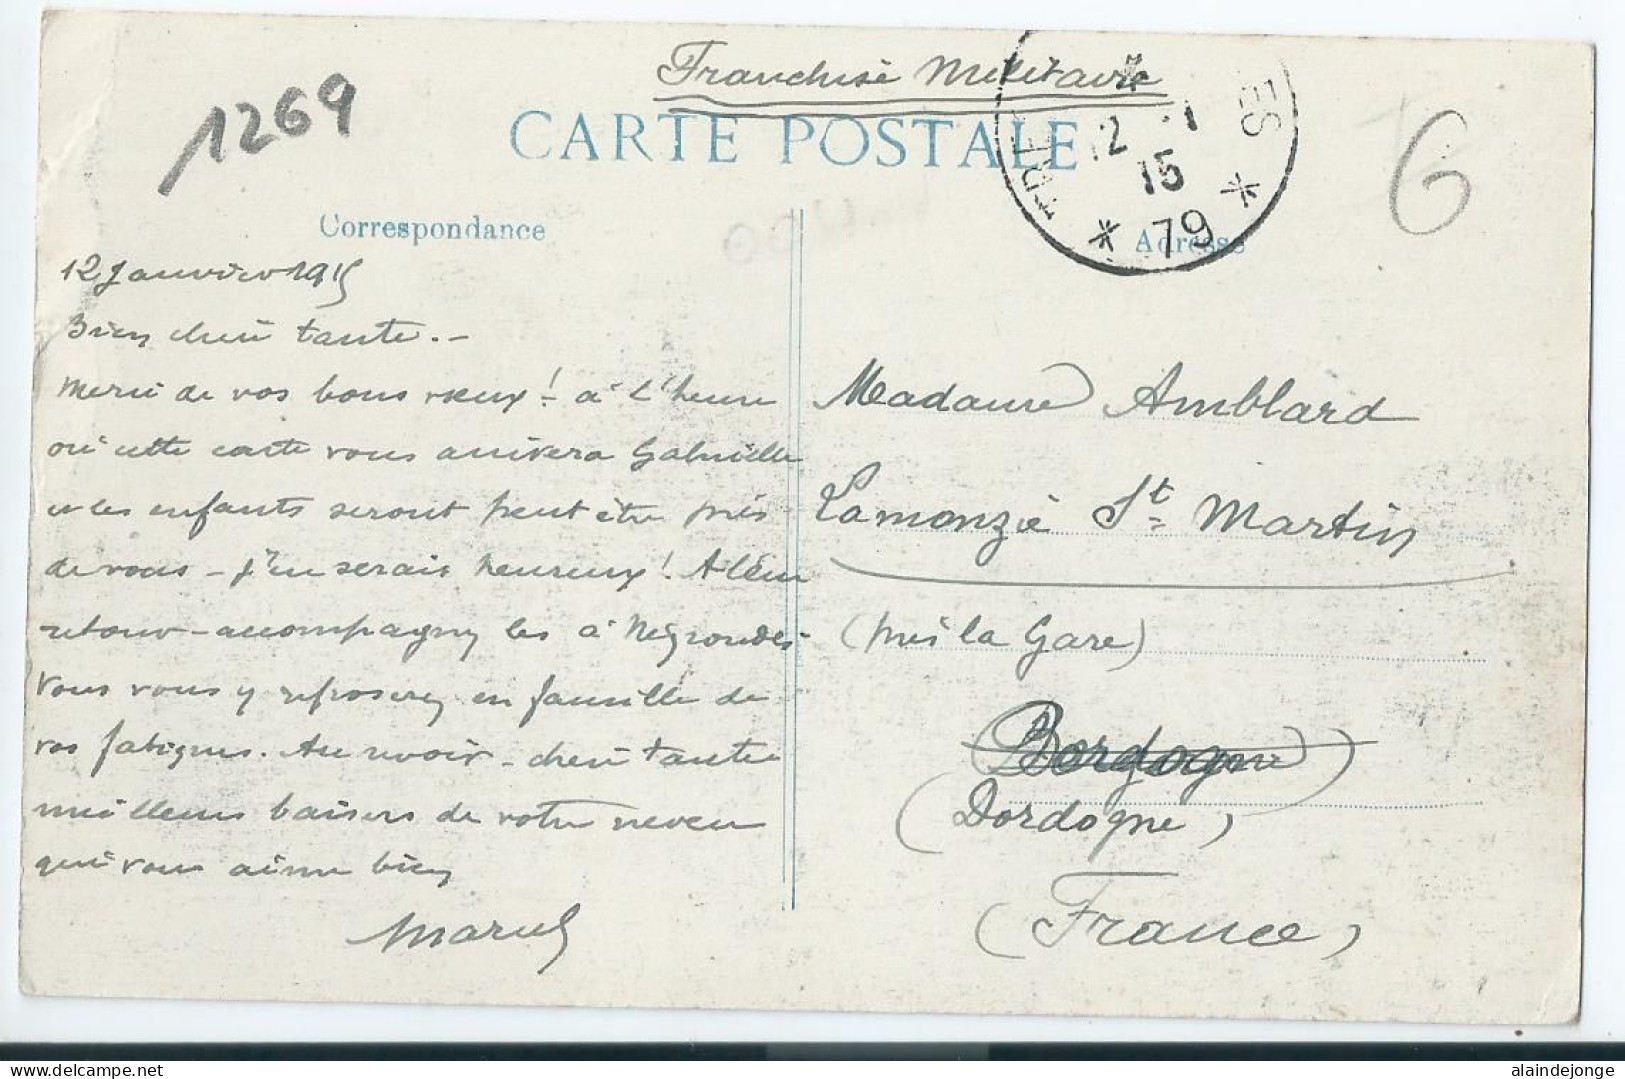 1269
Franchise Militaire
CARTE POSTALE
12 -1
15
* 79 *
6
Correspondance
Adresse
12 Janvier 1915
Bien chère tante. -
Merci de vos bons vœux ! à l'heure
où cette carte vous arrivera Gabrielle
et les enfants seront peut être près
de vous - j'en serais heureux ! A leur
retour - accompagnez les à Négrondes
Vous vous y reposerez en famille de
vos fatigues. Au revoir - chère tante
meilleurs baisers de votre neveu
qui vous aime bien
Marcel
Madame Amblard
Lamonzie St Martin
(près la Gare)
(Bordogne)
(Dordogne)
(France)
alaindejonge
www.delcampe.net